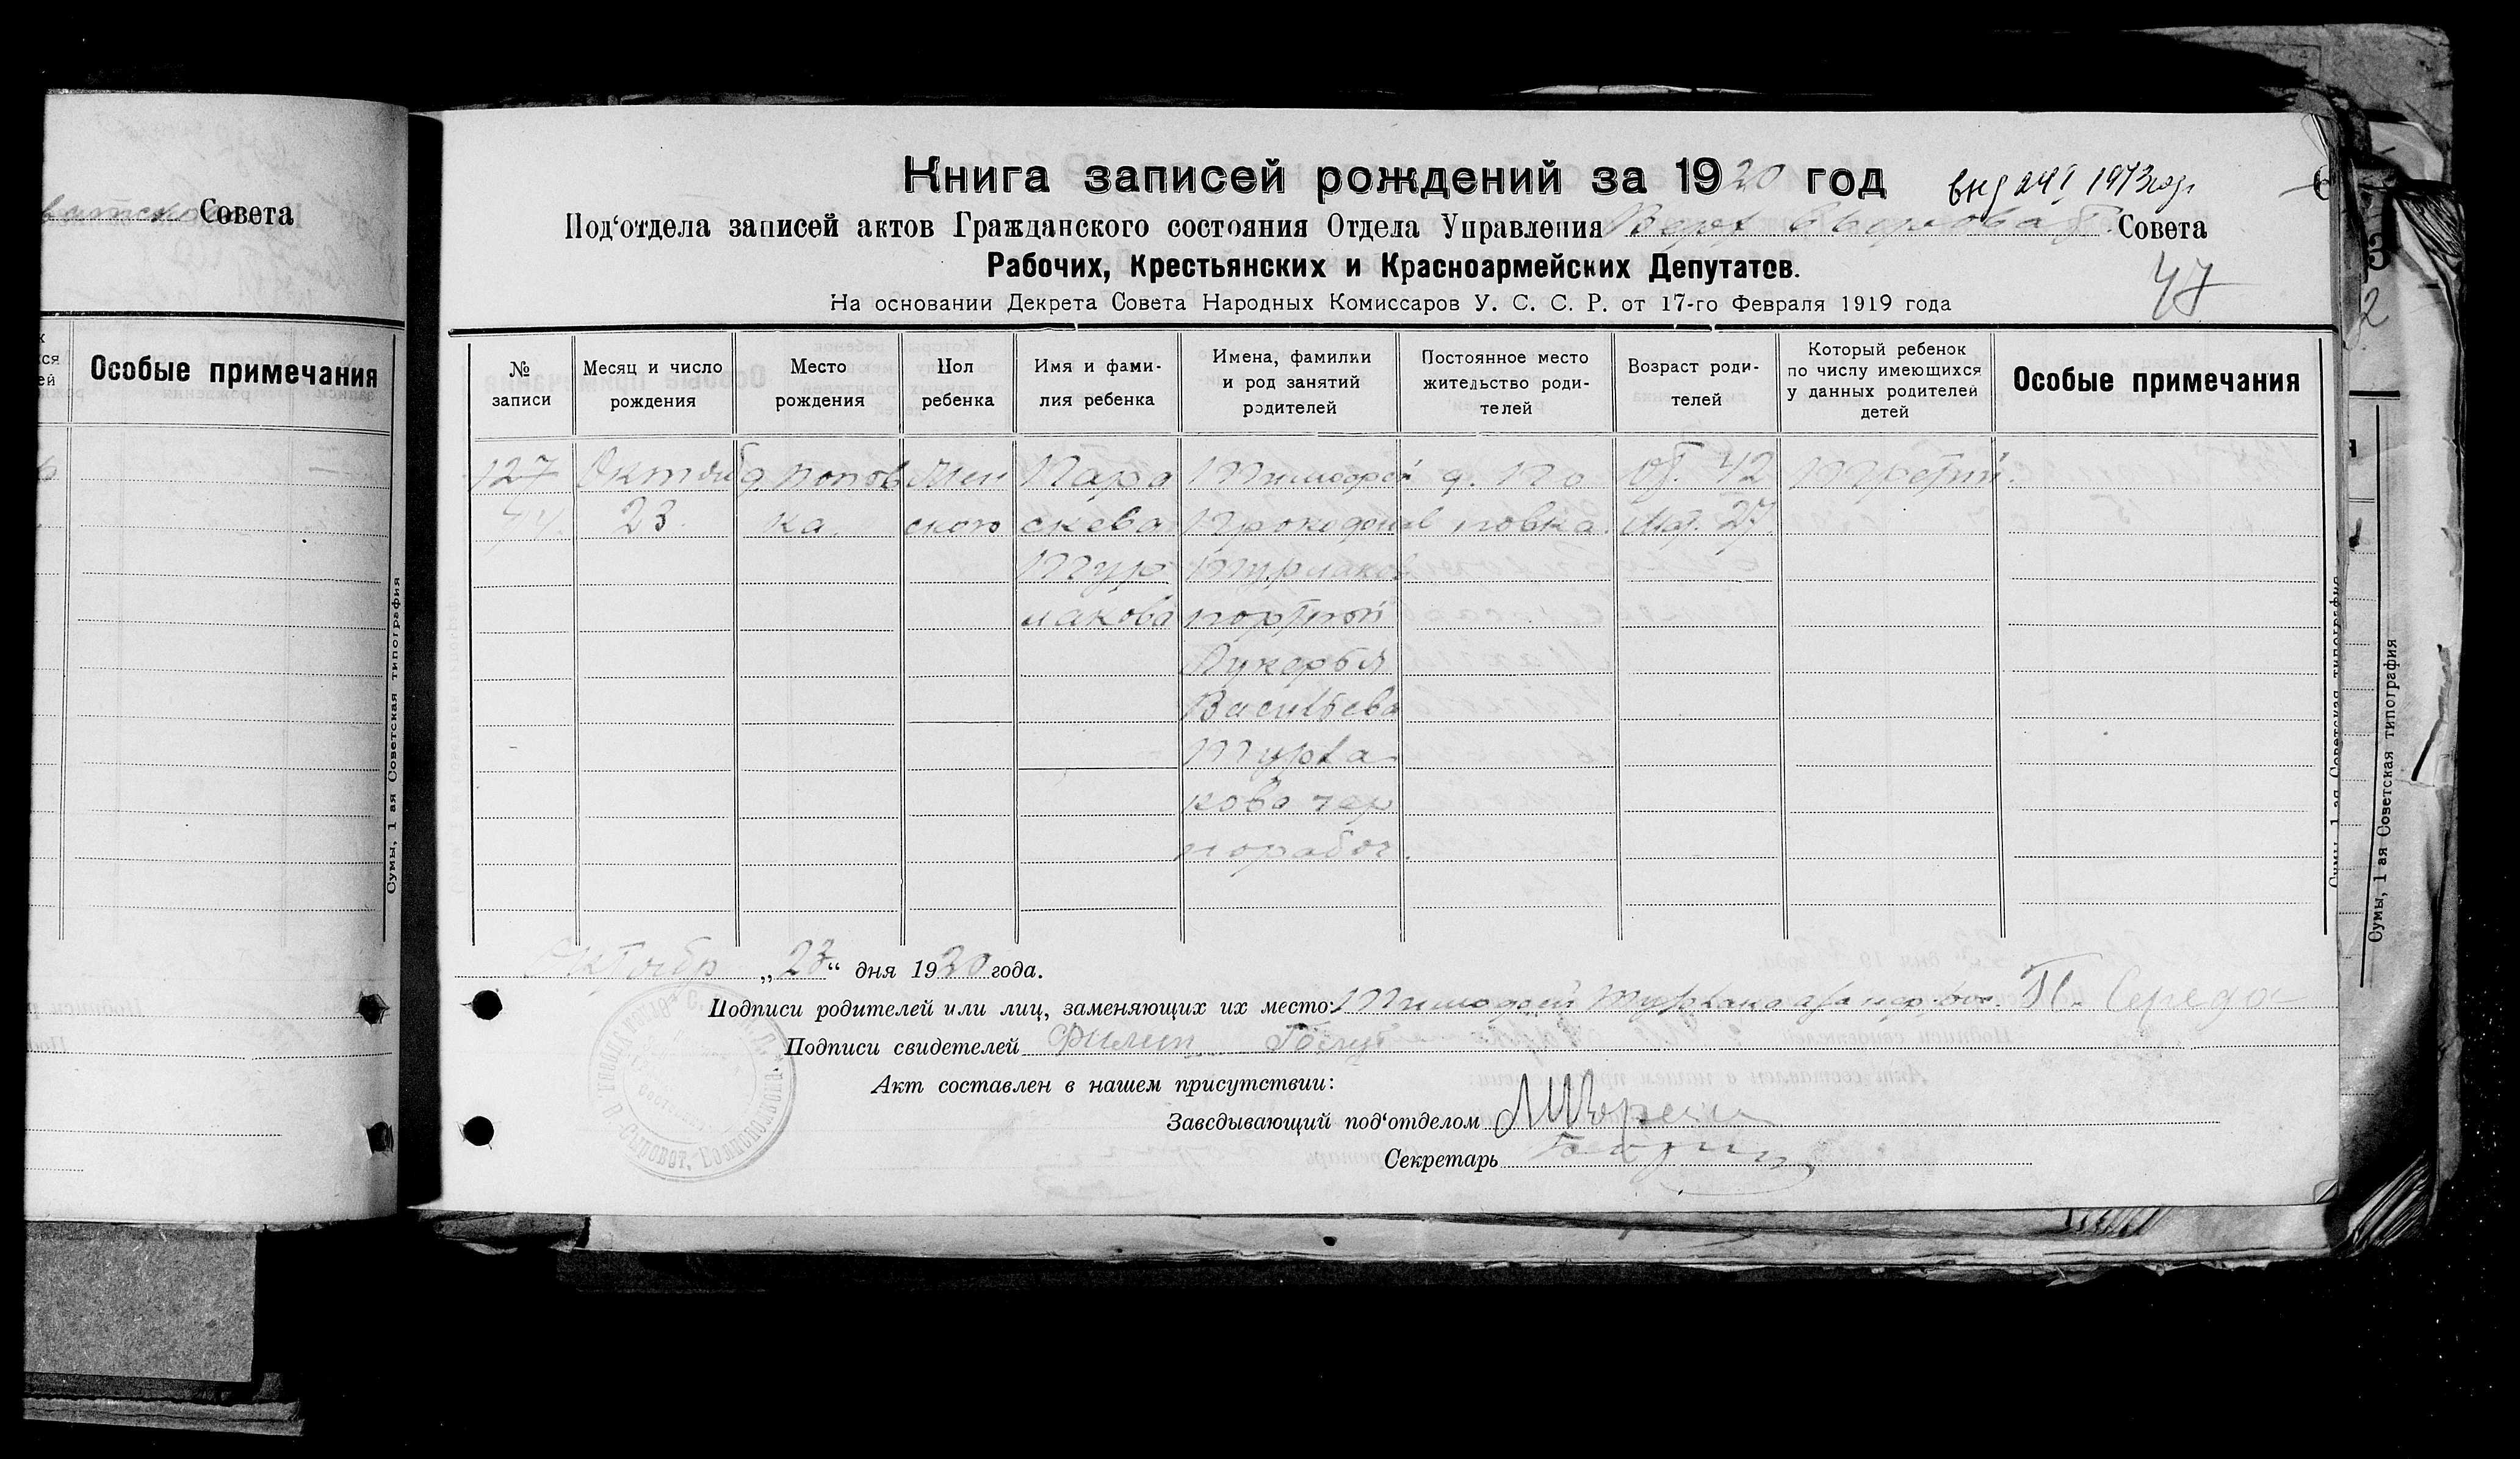 Совета
Особые примечания
Сумы, 1 ая Советская типография
Книга записей рождений за 1920 год
241 1973 год
Под‘отдела записей актов Гражданского состояния Отдела Управления Верх Сыроват. Совета
Рабочих, Крестьянских и Красноармейских Депутатов.
47
На основании Декрета Совета Народных Комиссаров У. С. С. Р. от 17-го Февраля 1919 года
№ записи
Месяц и число рождения
Место рождения
Пол ребенка
Имя и фами-
лия ребенка
Имена, фамилии
и род занятий
родителей
Постоянное место
жительство роди-
телей
Возраст роди-
телей
Который ребенок
по числу имеющихся
у данных родителей
детей
Особые примечания
127 Октяб д. Попов Жен Пара Тимофей д. По От. 42 Третий.
23 ка. ского скева Прокофиев повка. Мат. 27.
Тур Турлаков
лакова портной
Лукерья
Васильева
Турла
кова чер
норабоч.
Октябр „23“ дня 1920 года.
Подписи родителей или лиц, заменяющих их место: Тимофей П. Середа
Подписи свидетелей Филип
Акт составлен в нашем присутствии:
Заведывающий под‘отделом
Секретарь
Сумы, 1 ая Советская типография
Сумы, 1 ая Советская типография